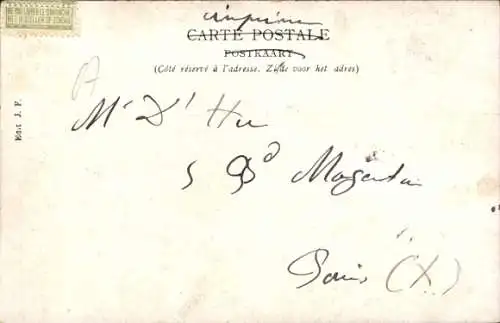 imprimé
CARTE POSTALE
POSTKAART
(Côté réservé à l'adresse. Zijde voor het adres)
Edit J. F.
Mr D' Hu
5 Bd Magenta
Paris (X)